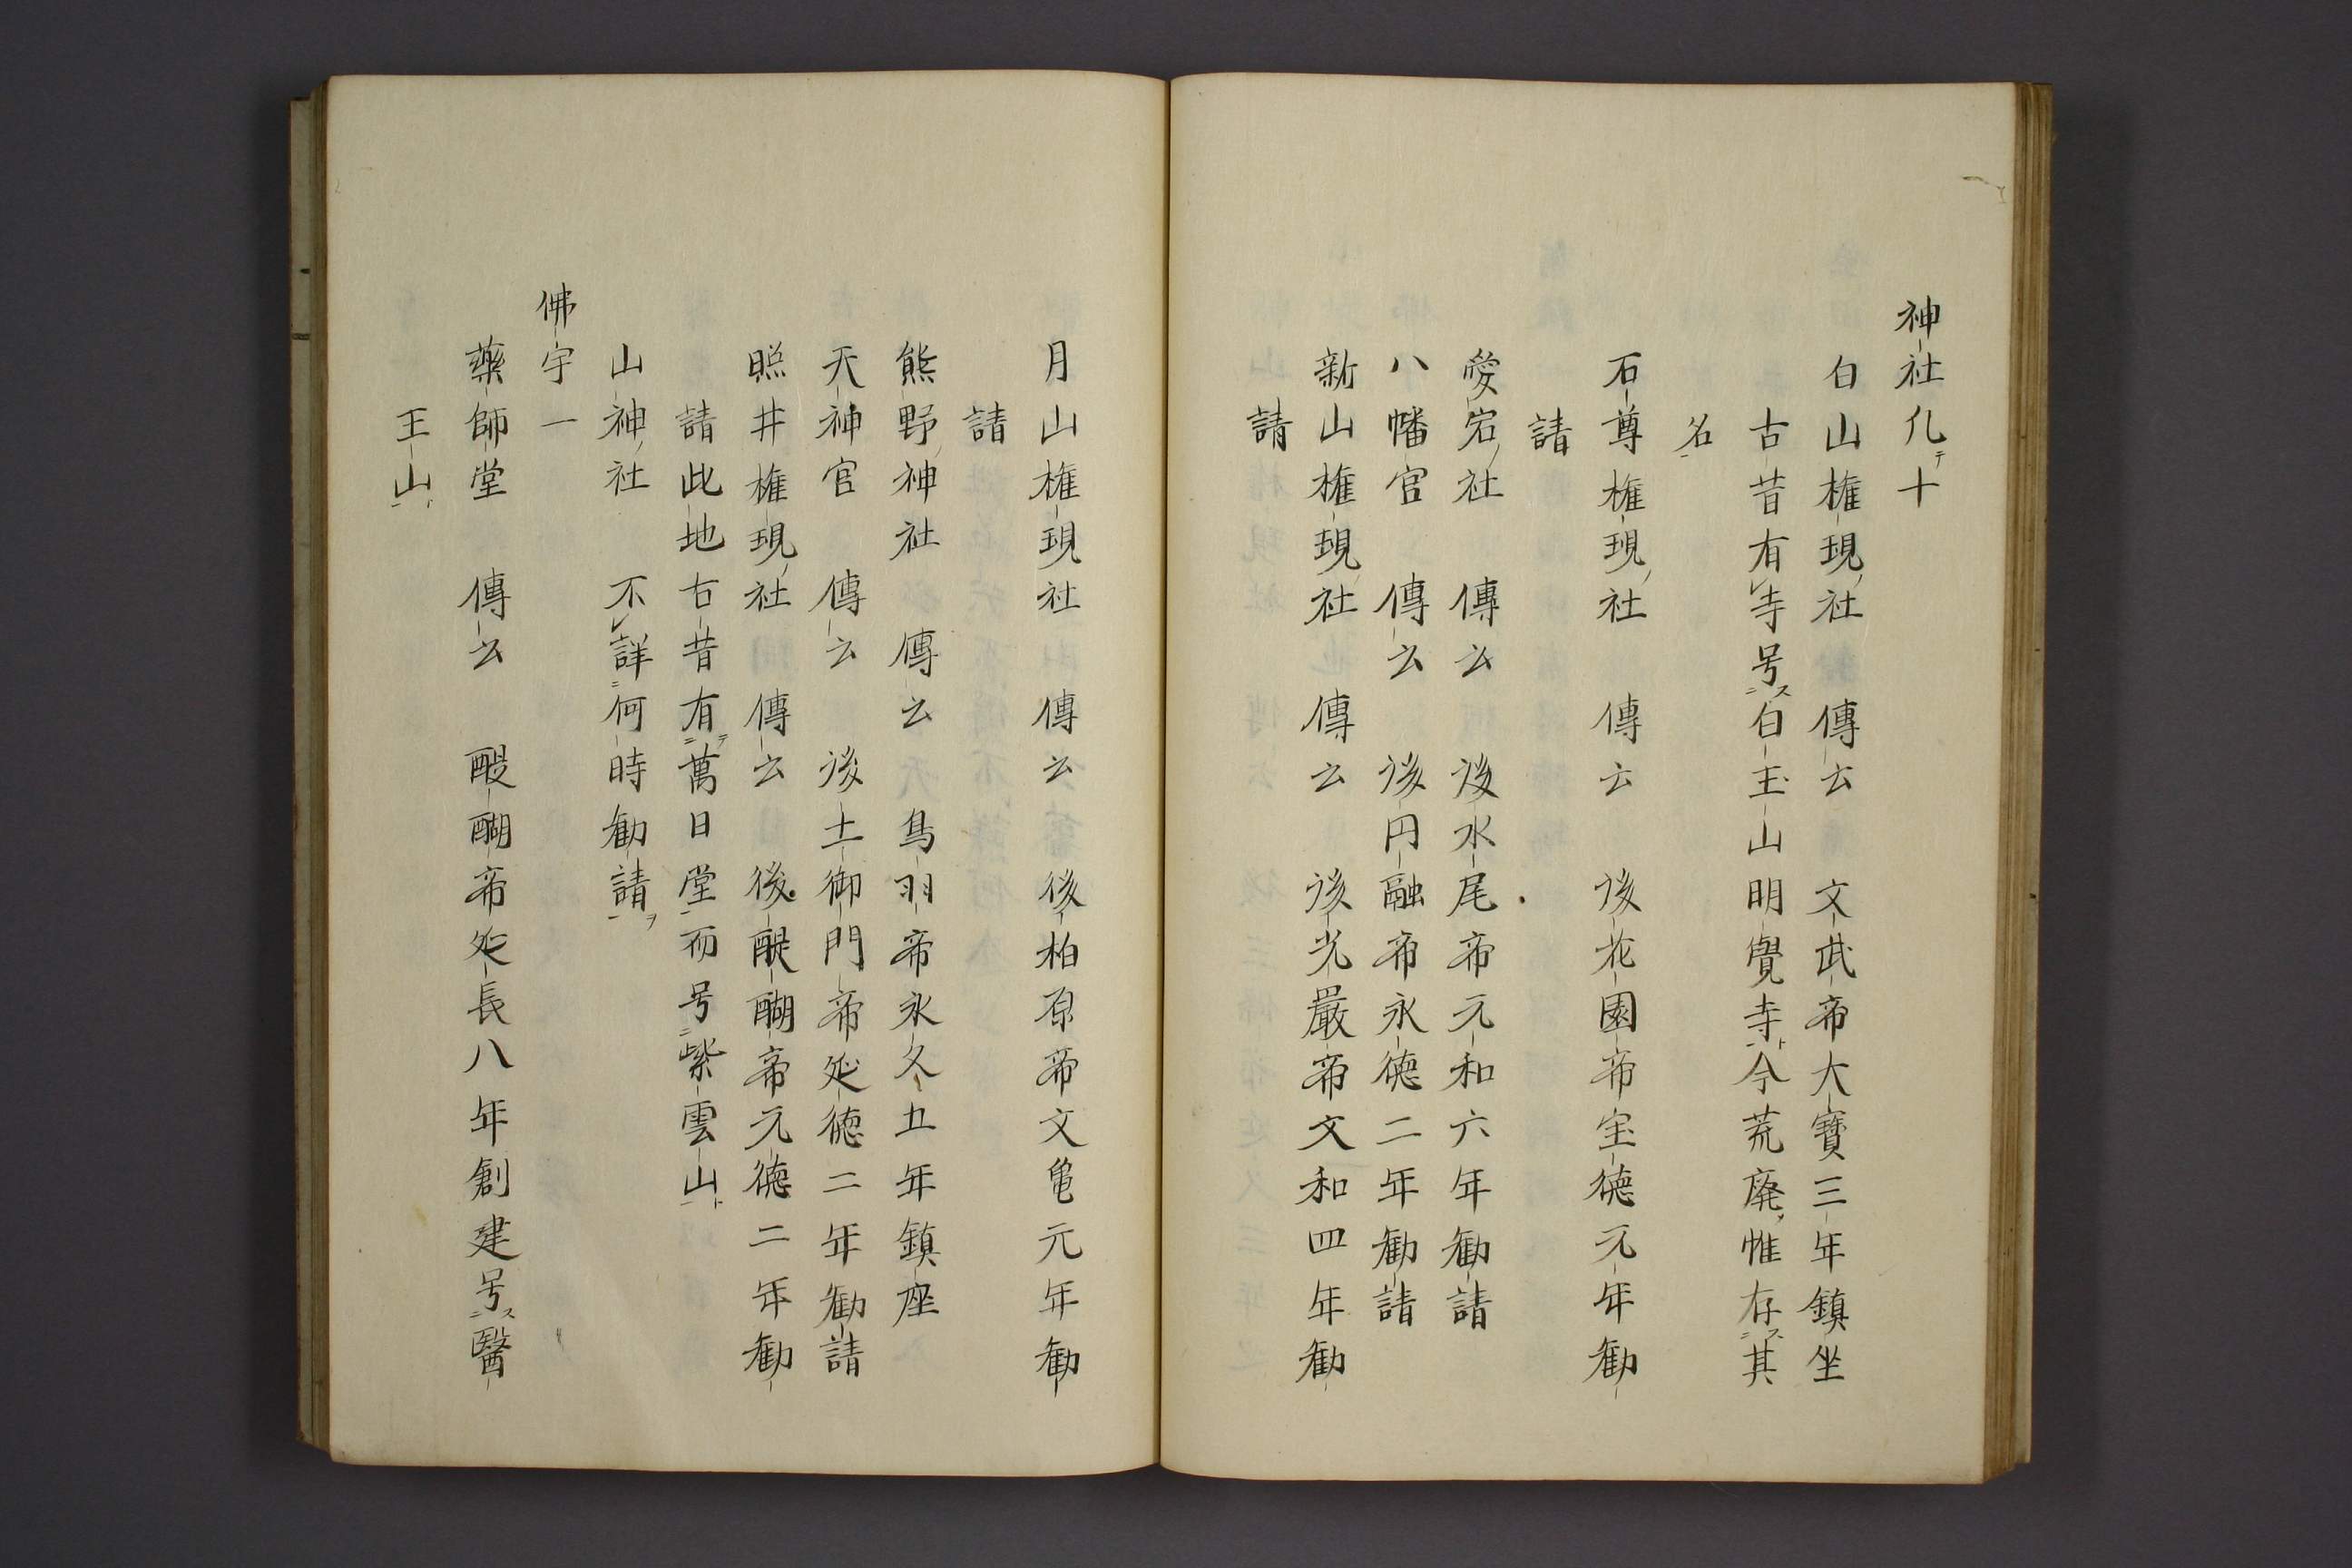 神社凢テ十
白山権現ノ社　傳云　文武帝大寶三年鎮坐
古昔有レ寺号ス二白玉山明覺寺ト一今荒廃ノ惟存ス二其
名一
石尊権現ノ社　傳云　後花園帝宝徳元年勧
請
愛宕ノ社　傳云　後水尾帝元和六年勧請
八幡宮　傳云　後円融帝永徳二年勧請
新山権現ノ社　傳云　後光嚴帝文和四年勧
請
月山権現社　傳云　後柏原帝文亀元年勧
請
熊野ノ神社　傳云　鳥羽帝永久五年鎮座
天神宮　傳云　後土御門帝延徳二年勧請
照井権現ノ社　傳云　後醍醐帝元徳二年勧
請此地古昔有テ二萬日堂一而号二紫雲山ト一
山神ノ社　不レ詳二何時勧請ヲ一
佛宇一
藥師堂　傳云　醍醐帝延長八年創建号ス二醫
王山ト一